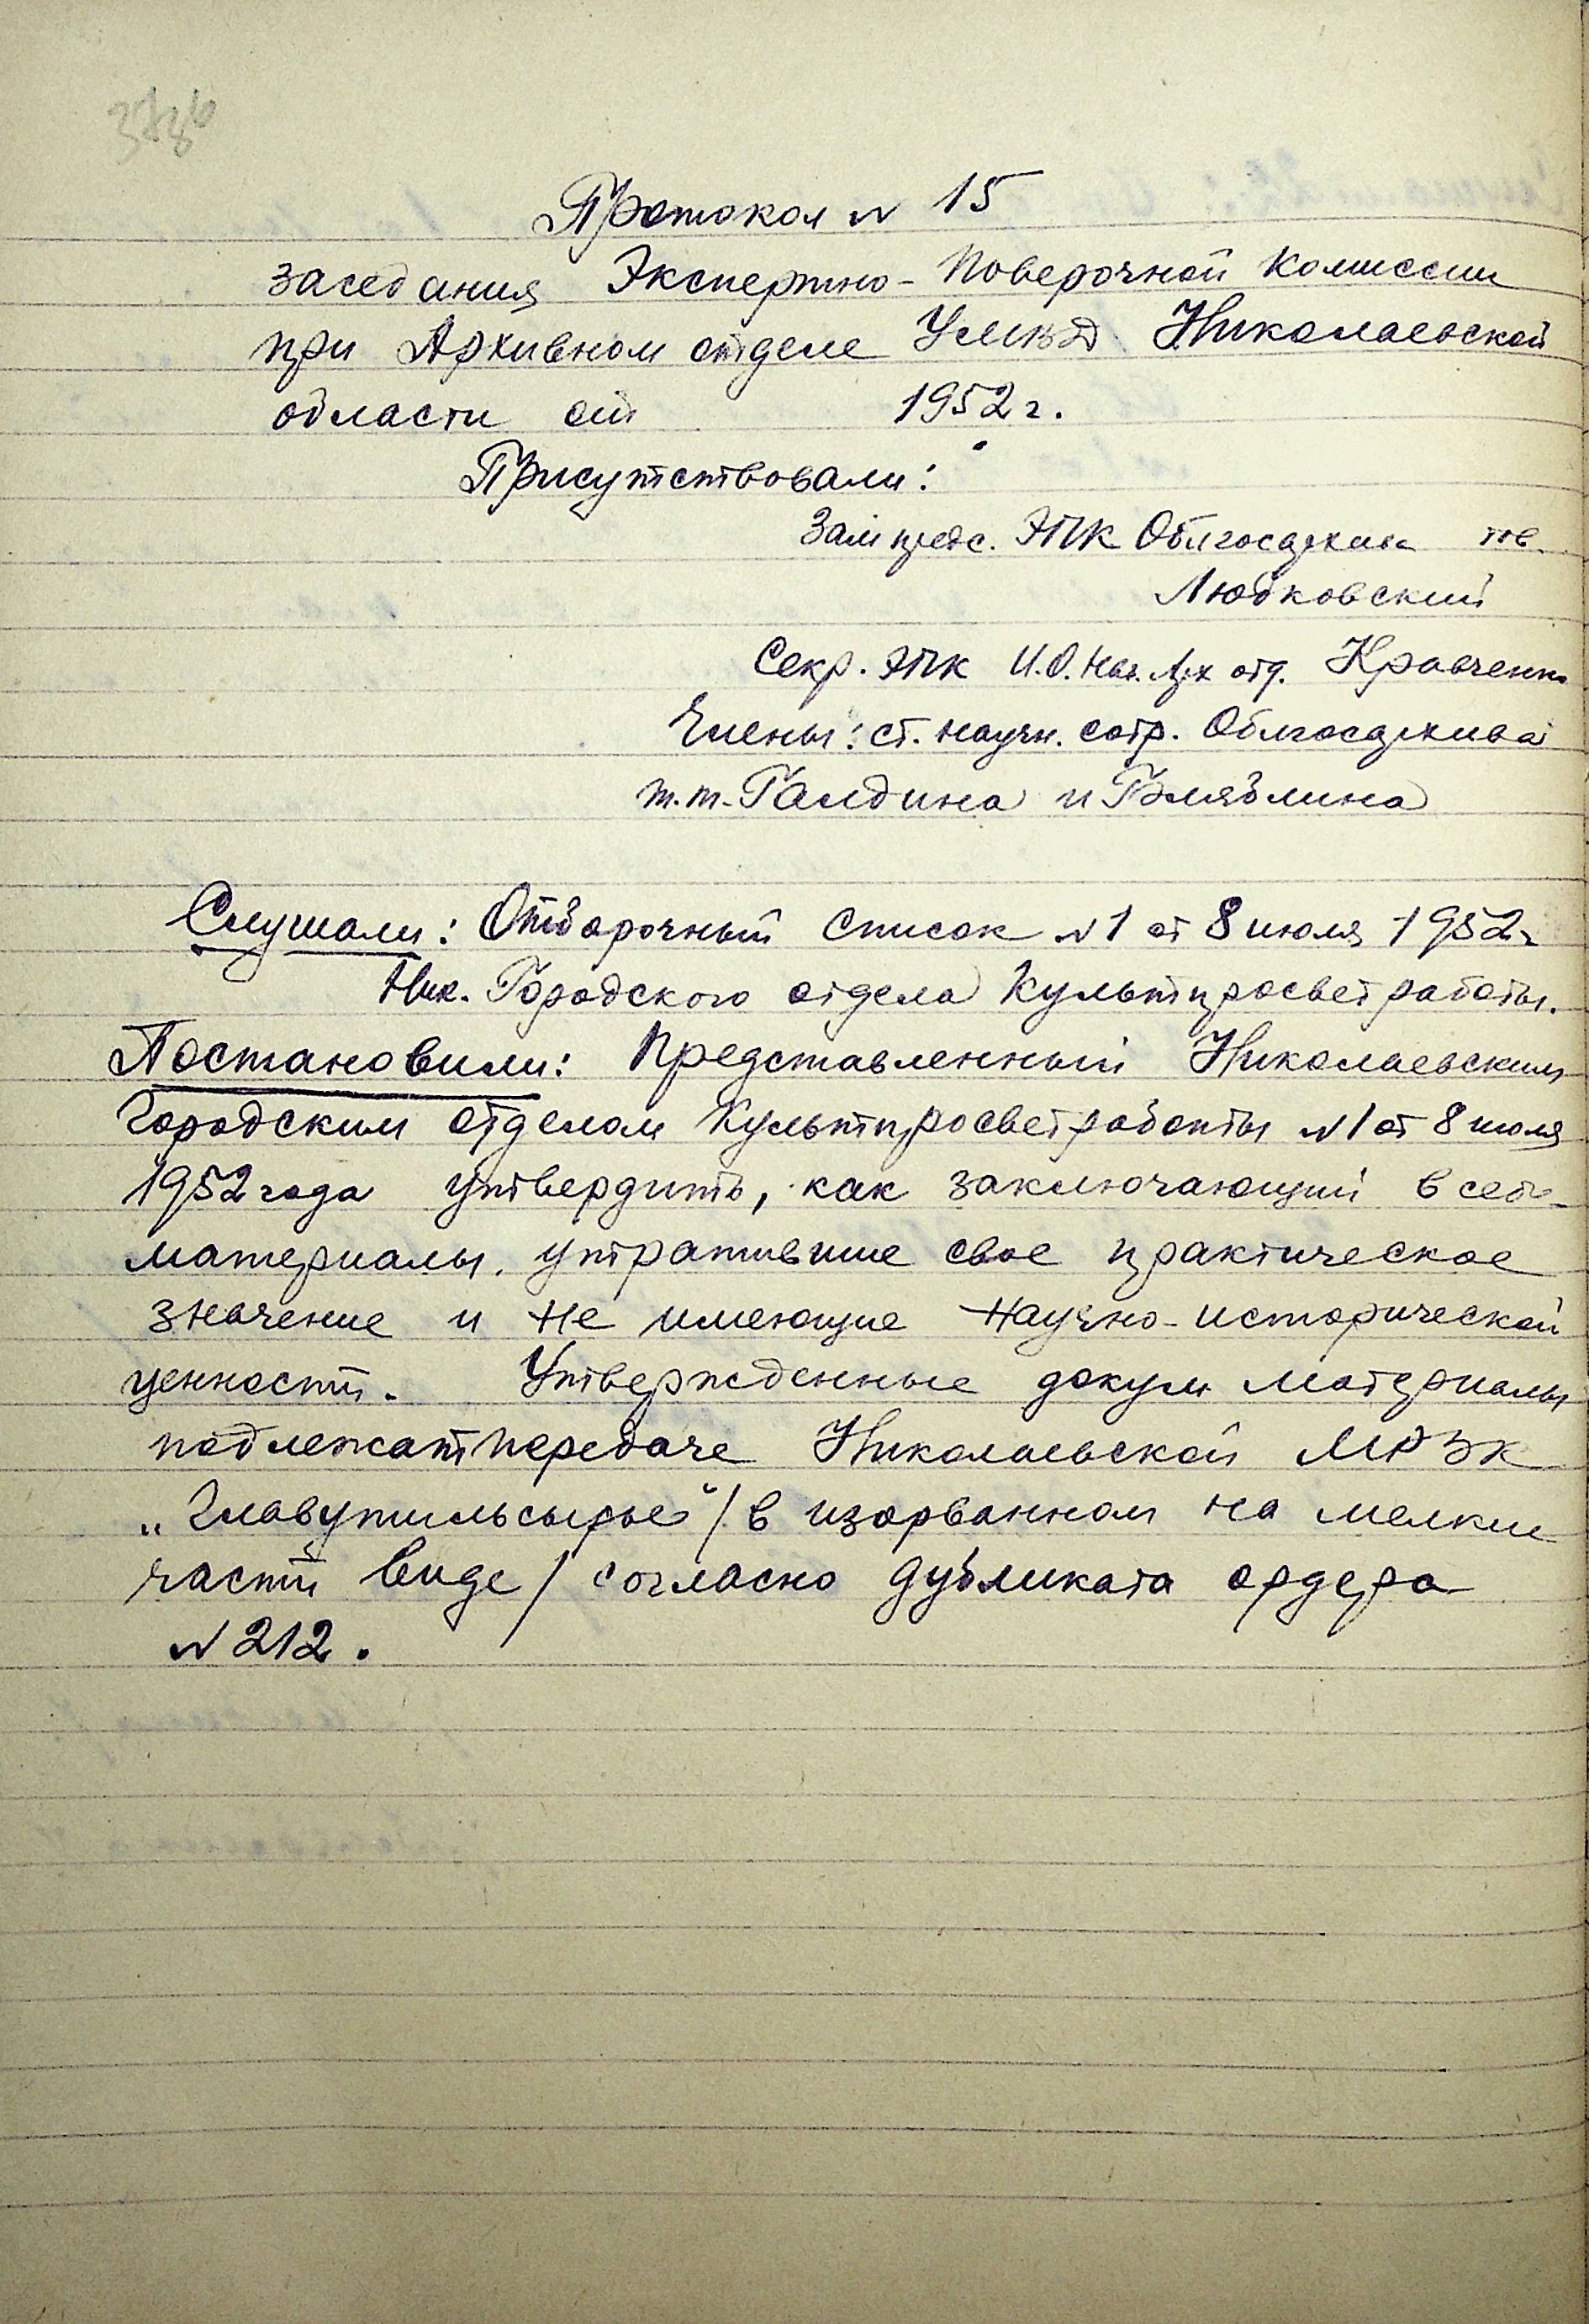 Протокол № 15
заседания Экспертно-Поверочной Комиссии
при Архивном отделе УМВД Николаевской
области от 1952 г.
Присутствовали:
Зам предс. ЭПК Облгосархива тов.
Людковский
Секр. ЭПК И.О. Нач. Арх отд. Кравченко
Члены: ст. научн. сотр. Облгосархива
т.т. Галдина и Блядлина
Слушали: Отборочный список №1 от 8 июля 1952 г
Ник. Городского отдела Культпросветработы.
Постановили: Представленный Николаевским
Городским отделом Культпросветработы №1 от 8 июля
1952 года утвердить, как заключающий в себе
материалы, утратившие свое практическое
значение и не имеющие научно-исторической
ценности. Утвержденные докум материалы
подлежат передаче Николаевской МРЗК
„Главутильсырье" / в изорванном на мелкие
части виде / согласно дубликата ордера
№ 212.